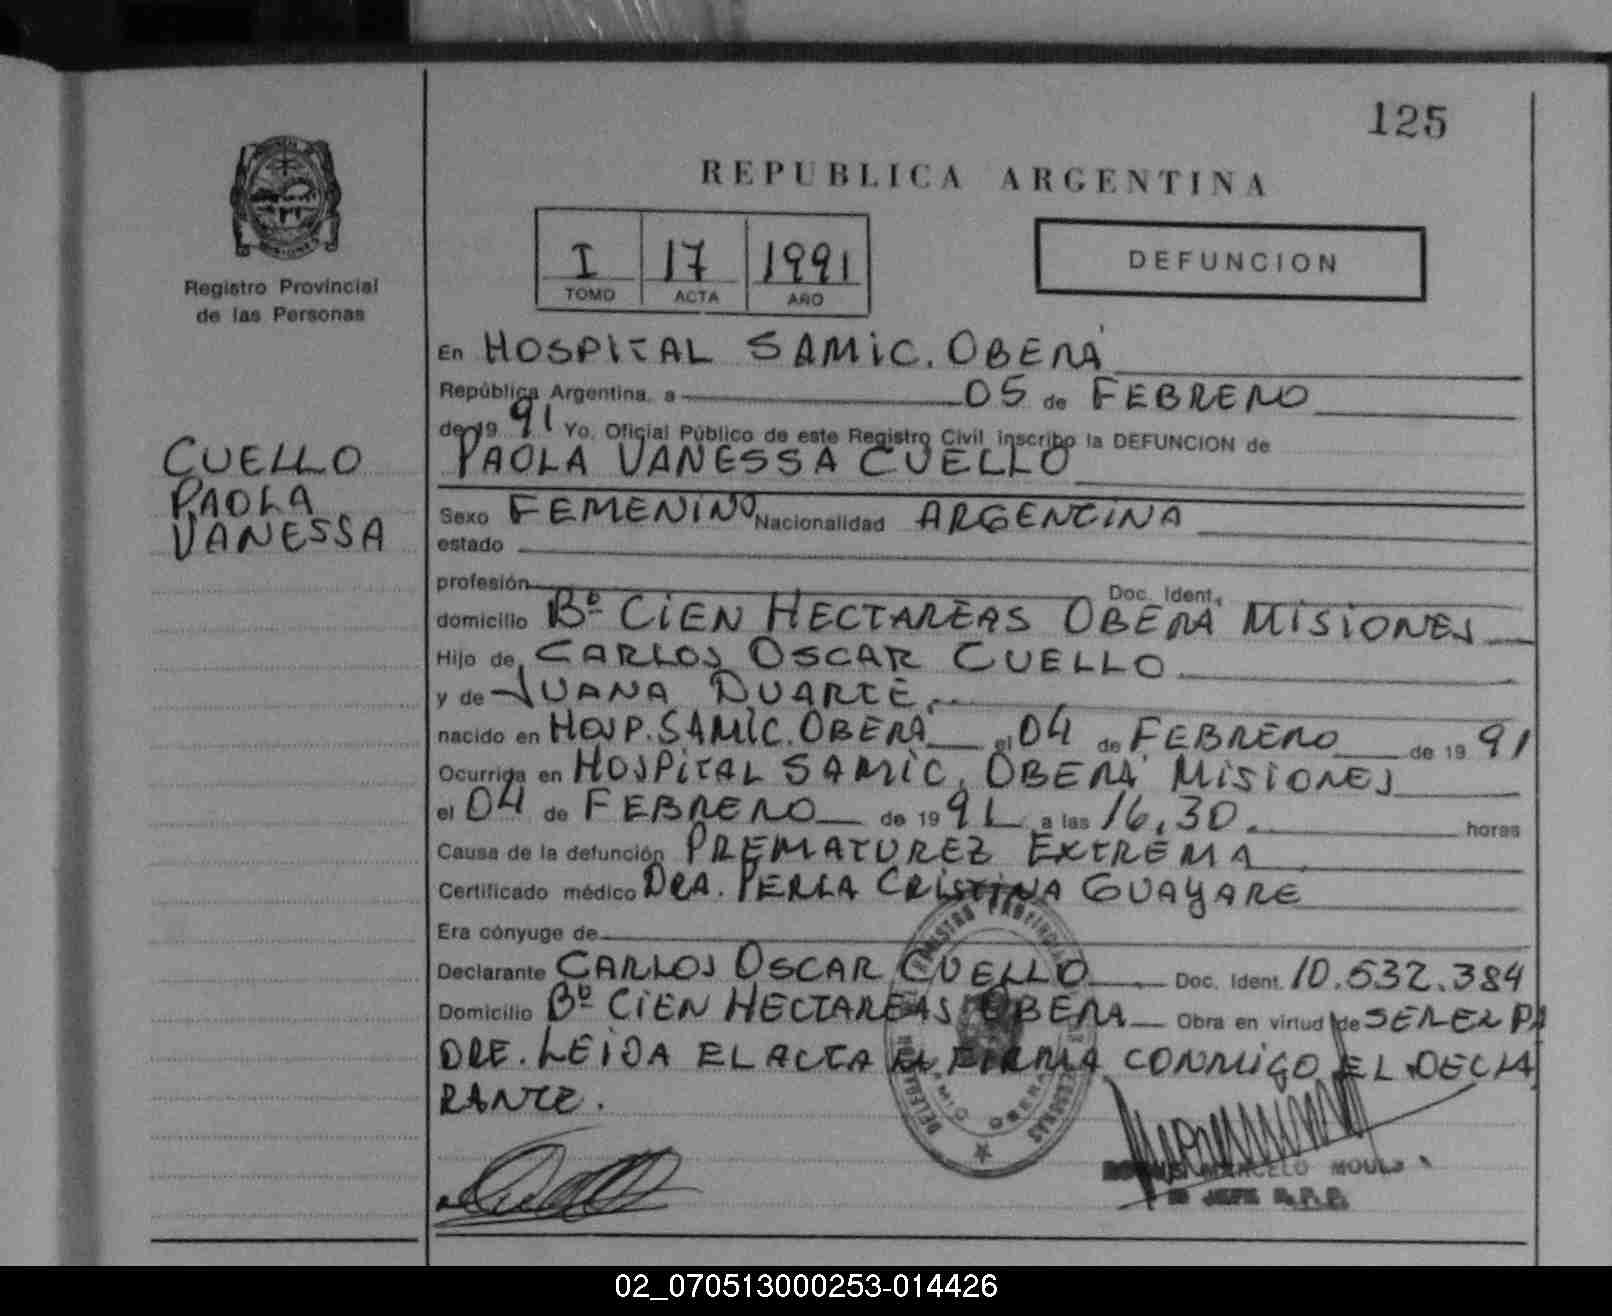 125
REPUBLICA ARGENTINA
I 17 1991
TOMO ACTA AÑO
DEFUNCION
Registro Provincial
de las Personas
CUELLO
PAOLA
VANESSA
En HOSPITAL SAMIC. OBERÁ
República Argentina, a 05 de FEBRERO
de 19 91 Yo, Oficial Público de este Registro Civil, inscribo la DEFUNCION de
PAOLA VANESSA CUELLO
Sexo FEMENINO Nacionalidad ARGENTINA
estado
profesión Doc. Ident.
domicilio Bº CIEN HECTAREAS OBERA MISIONES
Hijo de CARLOS OSCAR CUELLO
y de JUANA DUARTE.
nacido en HOSP. SAMIC. OBERA el 04 de FEBRERO de 19 91
Ocurrida en HOSPITAL SAMIC, OBERÁ MISIONES
el 04 de FEBRERO de 19 91 a las 16,30. horas
Causa de la defunción PREMATUREZ EXTREMA
Certificado médico DRA. PERLA CRISTINA GUAYARE
Era cónyuge de
Declarante CARLOS OSCAR CUELLO Doc. Ident. 10.532.384
Domicilio Bº CIEN HECTAREAS OBERA Obra en virtud de SER EL PA
DRE. LEIDA EL ACTA LA FIRMA CONMIGO EL DECLA
RANTE.
MARCELO
JEFE R.P.P.
02_070513000253-014426